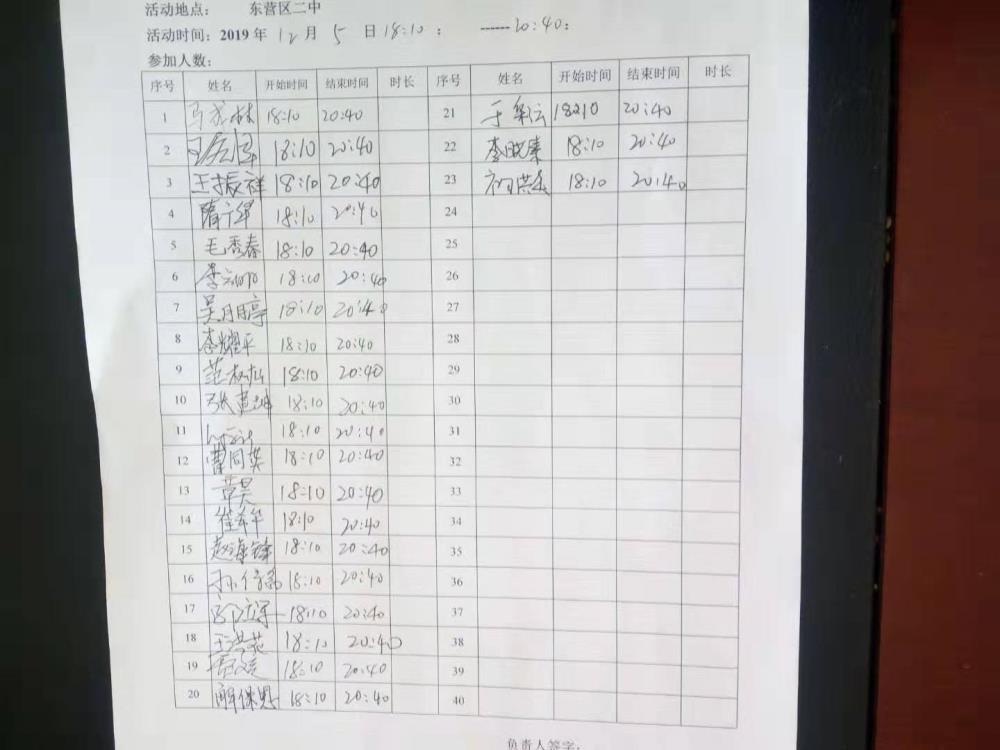 活动地点： 东营区二中
活动时间：2019 年 12 月 5 日 18:10 ： ------20:40：
参加人数：
序号 姓名 开始时间 结束时间 时长 序号 姓名 开始时间 结束时间 时长
1 18:10 20:40 21 于 18:10 20:40
2 王 18:10 20:40 22 李晓 18:10 20:40
3 王振祥 18:10 20:40 23 18:10 20:40
4 隋 18:10 20:40 24
5 毛秀春 18:10 20:40 25
6 李 18:10 20:40 26
7 吴月婷 18:10 20:40 27
8 李耀平 18:10 20:40 28
9 范 18:10 20:40 29
10 张建坤 18:10 20:40 30
11 18:10 20:40 31
12 曹同英 18:10 20:40 32
13 18:10 20:40 33
14 崔 18:10 20:40 34
15 赵海锋 18:10 20:40 35
16 孙 18:10 20:40 36
17 18:10 20:40 37
18 王洪花 18:10 20:40 38
19 18:10 20:40 39
20 解保恩 18:10 20:40 40
负责人签字：